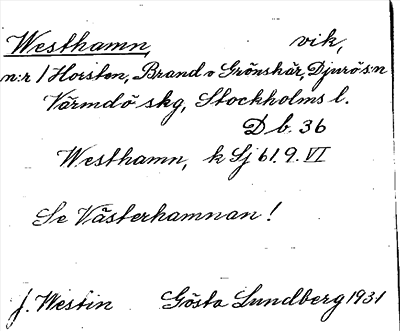 Westhamn, vik,
n:r / Horsten, Brand o Grönskär, Djurö s:n
Värmdö skg, Stockholms l.
D b. 36
Westhamn, k Sj 61.9. VI
Se Västerhamnan!
J. Westin Gösta Lundberg 1931